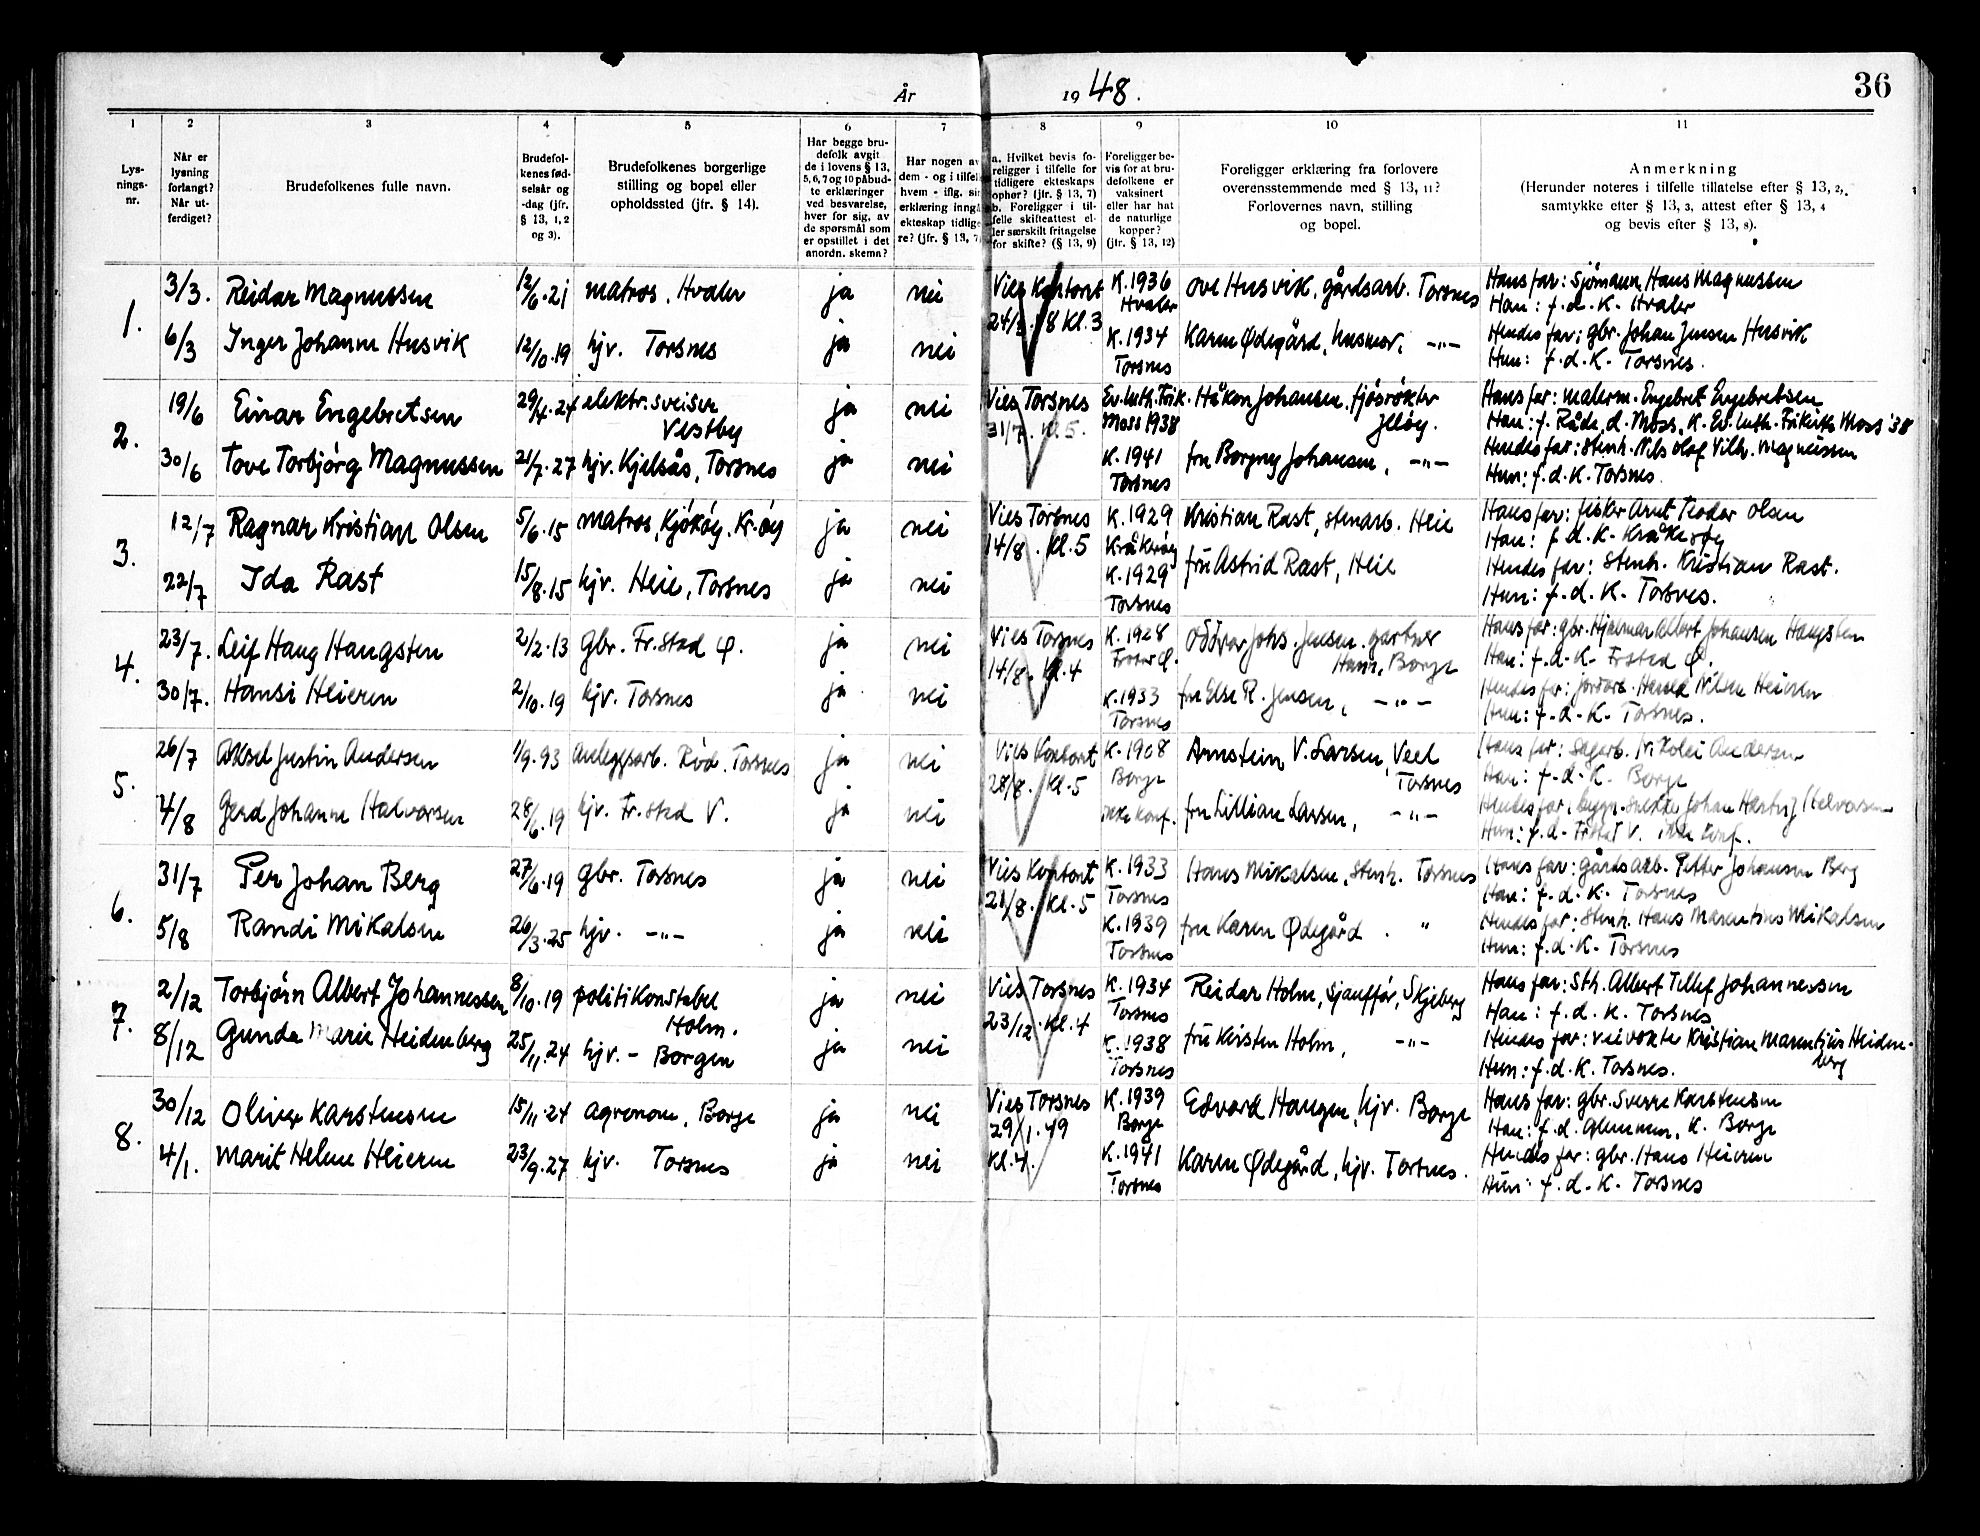 36
År 1948.
1 2 3 4 5 6 7 8 9 10 11
Lys-
nings-
nr.
Når er
lysning
forlangt?
Når ut-
ferdiget?
Brudefolkenes fulle navn.
Brudefol-
kenes fød-
selsår og
-dag (jfr.
§ 13, 1, 2
og 3).
Brudefolkenes borgerlige
stilling og bopel eller
opholdssted (jfr. § 14).
Har begge bru-
defolk avgit
de i lovens § 13,
5, 6, 7 og 10 påbud-
te erklæringer
ved besvarelse,
hver for sig, av
de spørsmål som
er opstillet i det
anordn. skema?
Har nogen av
dem - og i tilfel
hvem - iflg. sin
erklæring inngå
ekteskap tidlige
re? (jfr. § 13, 7
a. Hvilket bevis fo-
religger i tilfelle for
tidligere ekteskaps
ophør? (jfr. § 13, 7)
b. Foreligger i til-
felle skifteattest el-
ler særskilt fritagelse
for skifte? (§ 13, 9)
Foreligger be-
vis for at bru-
defolkene er
vaksinert
eller har hat
de naturlige
kopper?
(jfr. § 13, 12)
Foreligger erklæring fra forlovere
overensstemmende med § 13, 11?
Forlovernes navn, stilling
og bopel.
Anmerkning
(Herunder noteres i tilfelle tillatelse efter § 13, 2,
samtykke efter § 13, 3, attest efter § 13, 4
og bevis efter § 13, 8).
1.
3/3. Reidar Magnussen 12/6.21 matros, Hvaler ja nei
6/3 Inger Johanne Husvik 12/10.19 hjv. Torsnes ja nei
Vies Kontoret
24/3. 48 Kl. 3
K. 1936
Hvaler
K. 1934
Torsnes
Ove Husvik, gårdsarb. Torsnes
Karen Ødegård, husmor, -"-
Hans far: Sjømann Hans Magnussen
Han: f. d. K. Hvaler
Hendes far: gbr. Johan Jensen Husvik
Hun: f. d. K. Torsnes.
2.
19/6 Einar Engebretsen 29/4.24 elektr. sveiser
Vestby ja nei
30/6 Tove Torbjørg Magnussen 21/7.27 hjv. Kjelsås, Torsnes ja nei
Vies Torsnes
31/7. Kl. 5.
Ev. luth. Frik.
Moss 1938
K. 1941
Torsnes
Håkon Johansen, fjøsrøkter
Jeløy.
fru Borgny Johansen, -"-
Hans far: malerm. Engebret Engebretsen
Han: f. Råde, d. Moss, K. Ev. luth. Frikirke Moss '38
Hendes far: Stenh. Nils Olaf Vilh. Magnussen
Hun: f. d. K. Torsnes.
3.
12/7 Ragnar Kristian Olsen 5/6.15 matros, Kjøkøy, Kr.øy ja nei
22/7 Ida Rast 15/8.15 hjv. Heie, Torsnes ja nei
Vies Torsnes
14/8. Kl. 5
K. 1929
Kråkerøy
K. 1929
Torsnes
Kristian Rast, stenarb. Heie
fru Astrid Rast, Heie
Hans far: fisker Arnt Teodor Olsen
Han: f. d. K. Kråkerøy
Hendes far: Stenh. Kristian Rast.
Hun: f. d. K. Torsnes.
4.
23/7. Leif Haug Haugsten 2/2.13 gbr. Fr.stad Ø. ja nei
30/7. Hansi Heieren 2/10.19 hjv. Torsnes ja nei
Vies Torsnes
14/8. Kl. 4
K. 1928
Frstad Ø.
K. 1933
Torsnes
Oddvar Johs. Jensen, gartner
Borge
fru Else R. Jensen, -"-
Hans far: gbr. Hjalmar Albert Johansen Haugsten
Han: f. d. K. Frstad Ø.
Hendes far: jordarb. Harald Nilsen Heieren
Hun: f. d. K. Torsnes.
5.
26/7 Aksel Justin Andersen 1/9.93 anleggsarb. Rød. Torsnes ja nei
4/8 Gerd Johanne Halvorsen 28/6.19 hjv. Fr.stad V. ja nei
Vies Kontoret
28/8. Kl. 5
K. 1908
Borge
ikke konf.
Arnstein V. Larsen, Veel
Torsnes
fru Lillian Larsen, -"-
Hans far: Sagarb. Nikolai Andersen
Han: f. d. K. Borge
Hendes far: bygn. snekker Johan Halvorsen
Hun: f. d. Frstad V. ikke konf.
6.
31/7 Per Johan Berg 27/6.19 gbr. Torsnes ja nei
5/8 Randi Mikalsen 26/3.25 hjv. -"- ja nei
Vies Kontoret
21/8. Kl. 5
K. 1933
Torsnes
K. 1939
Torsnes
Hans Mikalsen, Stenh. Torsnes
fru Karen Ødegård. "
Hans far: gårdsarb. Petter Johansen Berg
Han: f. d. K. Torsnes
Hendes far: Stenh. Hans Marentius Mikalsen
Hun: f. d. K. Torsnes
7.
2/12 Torbjørn Albert Johannessen 8/10.19 politikonstabel
Holm. ja nei
8/12 Gunda Marie Heidenberg 25/11.24 hjv. - Borgen ja nei
Vies Torsnes
23/12. Kl. 4
K. 1934
Torsnes
K. 1938
Torsnes
Reidar Holm, Sjauffør, Skjeberg
fru Kirsten Holm, -"-
Hans far: Sth. Albert Tellef Johannessen
Han: f. d. K. Torsnes
Hendes far: veivokter Kristian Marentius Heiden-
berg
Hun: f. d. K. Torsnes.
8.
30/12 Oliver Karstensen 15/11.24 agronom, Borge ja nei
4/1. Marit Helene Heieren 23/9.27 hjv. Torsnes ja nei
Vies Torsnes
29/1. 49
Kl. 4.
K. 1939
Borge
K. 1941
Torsnes
Edvard Haugen, hjv. Borge
Karen Ødegård, hjv. Torsnes.
Hans far: gbr. Sverre Karstensen
Han: f. d. Glemmen, K. Borge
Hendes far: gbr. Hans Heieren
Hun: f. d. K. Torsnes